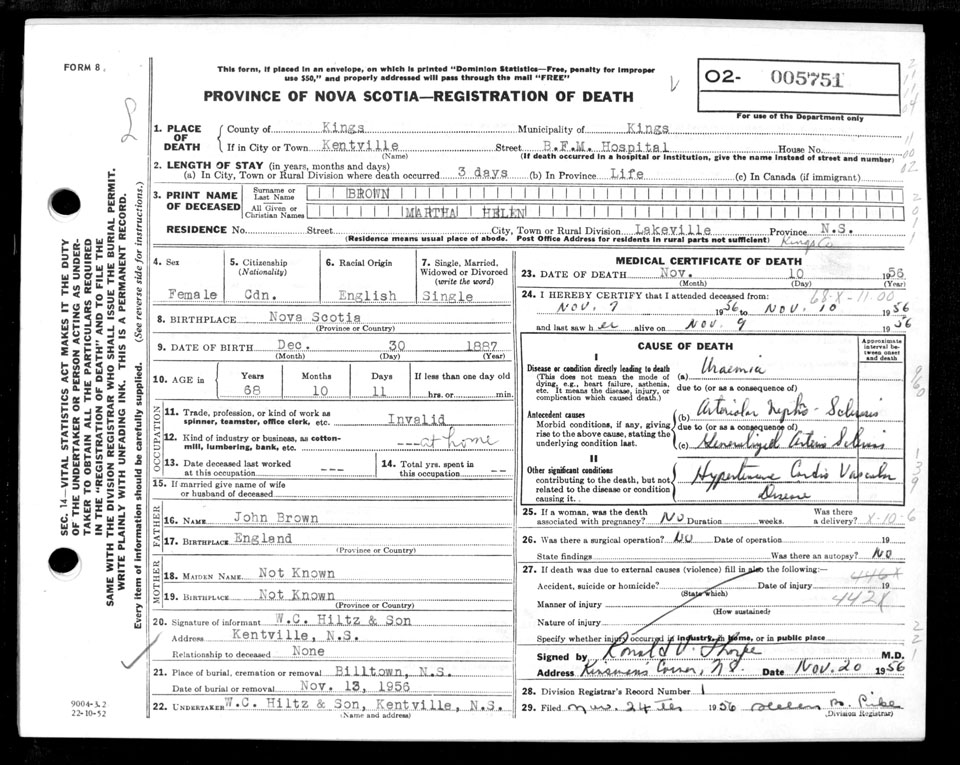 FORM 8.
This form, if placed in an envelope, on which is printed "Dominion Statistics—Free, penalty for improper
use $50," and properly addressed will pass through the mail "FREE"
PROVINCE OF NOVA SCOTIA—REGISTRATION OF DEATH
02- 005751
For use of the Department only
1. PLACE OF DEATH
County of Kings Municipality of Kings
If in City or Town Kentville Street B.F.M. Hospital House No.
(Name) (If death occurred in a hospital or institution, give the name instead of street and number)
2. LENGTH OF STAY (in years, months and days)
(a) In City, Town or Rural Division where death occurred 3 days (b) In Province Life (c) In Canada (if immigrant)
3. PRINT NAME OF DECEASED
Surname or Last Name BROWN
All Given or Christian Names MARTHA HELEN
RESIDENCE No. Street City, Town or Rural Division Lakeville Province N.S.
(Residence means usual place of abode. Post Office Address for residents in rural parts not sufficient) Kings Co
4. Sex
Female
5. Citizenship
(Nationality)
Cdn.
6. Racial Origin
English
7. Single, Married, Widowed or Divorced
(write the word)
Single
8. BIRTHPLACE Nova Scotia
(Province or Country)
9. DATE OF BIRTH Dec. 30 1887
(Month) (Day) (Year)
10. AGE in
Years Months Days If less than one day old
68 10 11 hrs. or min.
OCCUPATION
11. Trade, profession, or kind of work as
spinner, teamster, office clerk, etc. Invalid
12. Kind of industry or business, as cotton-
mill, lumbering, bank, etc. ---at home
13. Date deceased last worked
at this occupation ---
14. Total yrs. spent in
this occupation --
15. If married give name of wife
or husband of deceased
FATHER
16. NAME John Brown
17. BIRTHPLACE England
(Province or Country)
MOTHER
18. MAIDEN NAME Not Known
19. BIRTHPLACE Not Known
(Province or Country)
20. Signature of informant W.C. Hiltz & Son
Address Kentville, N.S.
Relationship to deceased None
21. Place of burial, cremation or removal Billtown, N.S.
Date of burial or removal Nov. 13, 1956
22. UNDERTAKER W.C. Hiltz & Son, Kentville, N.S.
(Name and address)
MEDICAL CERTIFICATE OF DEATH
23. DATE OF DEATH Nov. 10 1956
(Month) (Day) (Year)
68-X-11.00
24. I HEREBY CERTIFY that I attended deceased from:
Nov. 7 1956 to Nov. 10 1956
and last saw her alive on Nov. 9 1956
CAUSE OF DEATH
Approximate interval between onset and death
I
Disease or condition directly leading to death
(This does not mean the mode of
dying, e.g., heart failure, asthenia,
etc. It means the disease, injury, or
complication which caused death.)
(a) Uraemia
due to (or as a consequence of)
Antecedent causes
Morbid conditions, if any, giving
rise to the above cause, stating the
underlying condition last.
(b) Arteriolar Nephro-Sclerosis
due to (or as a consequence of)
(c) Generalized Arterio Sclerosis
II
Other significant conditions
contributing to the death, but not
related to the disease or condition
causing it.
Hypertensive Cardio Vascular
Disease
25. If a woman, was the death
associated with pregnancy? No Duration weeks. Was there a delivery? X-10-6
26. Was there a surgical operation? No Date of operation 19
State findings Was there an autopsy? No
27. If death was due to external causes (violence) fill in also the following:—
Accident, suicide or homicide? Date of injury 19
(State which)
446X
Manner of injury 442X
(How sustained)
Nature of injury
Specify whether injury occurred in industry, in home, or in public place
Signed by Ronald V. Thorpe M.D.
Address Kinsman's Corner, N.S. Date Nov. 20 1956
28. Division Registrar's Record Number 1
29. Filed Nov. 24th 1956 Helen B. Pike
(Division Registrar)
SEC. 14—VITAL STATISTICS ACT MAKES IT THE DUTY
OF THE UNDERTAKER OR PERSON ACTING AS UNDER-
TAKER TO OBTAIN ALL THE PARTICULARS REQUIRED
IN THE "REGISTRATION OF DEATH" AND TO FILE THE
SAME WITH THE DIVISION REGISTRAR WHO SHALL ISSUE THE BURIAL PERMIT.
WRITE PLAINLY WITH UNFADING INK. THIS IS A PERMANENT RECORD.
Every item of information should be carefully supplied. (See reverse side for instructions.)
9004-3.2
22-10-52